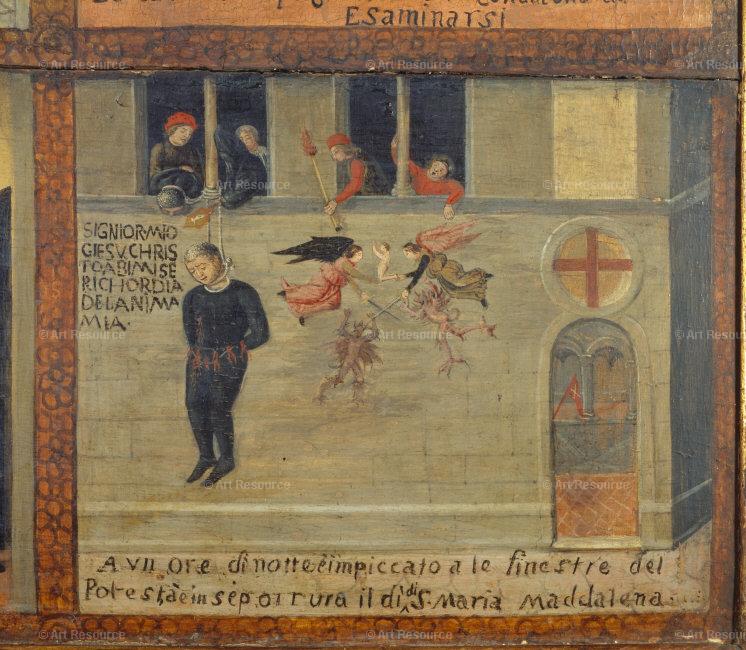 Esaminarsi
SIGNIORMIO
GIESV CHRIS
TO ABIMISE
RICHORDIA
DELANIMA
MIA·
A VII ore di notte è impiccato a le finestre del
Potestà e in sepoltura il dì di S. Maria Maddalena
© Art Resource